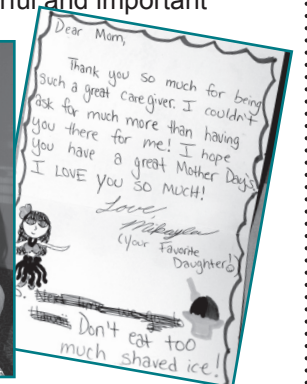 ful and important
Dear Mom,
Thank you so much for being
such a great caregiver. I couldn't
ask for much more than having
you there for me! I hope
you have a great Mother Day's
I LOVE YOU SO MUCH!
Love
Mikayla
(Your Favorite
Daughter!)
Don't eat too
much shaved ice!